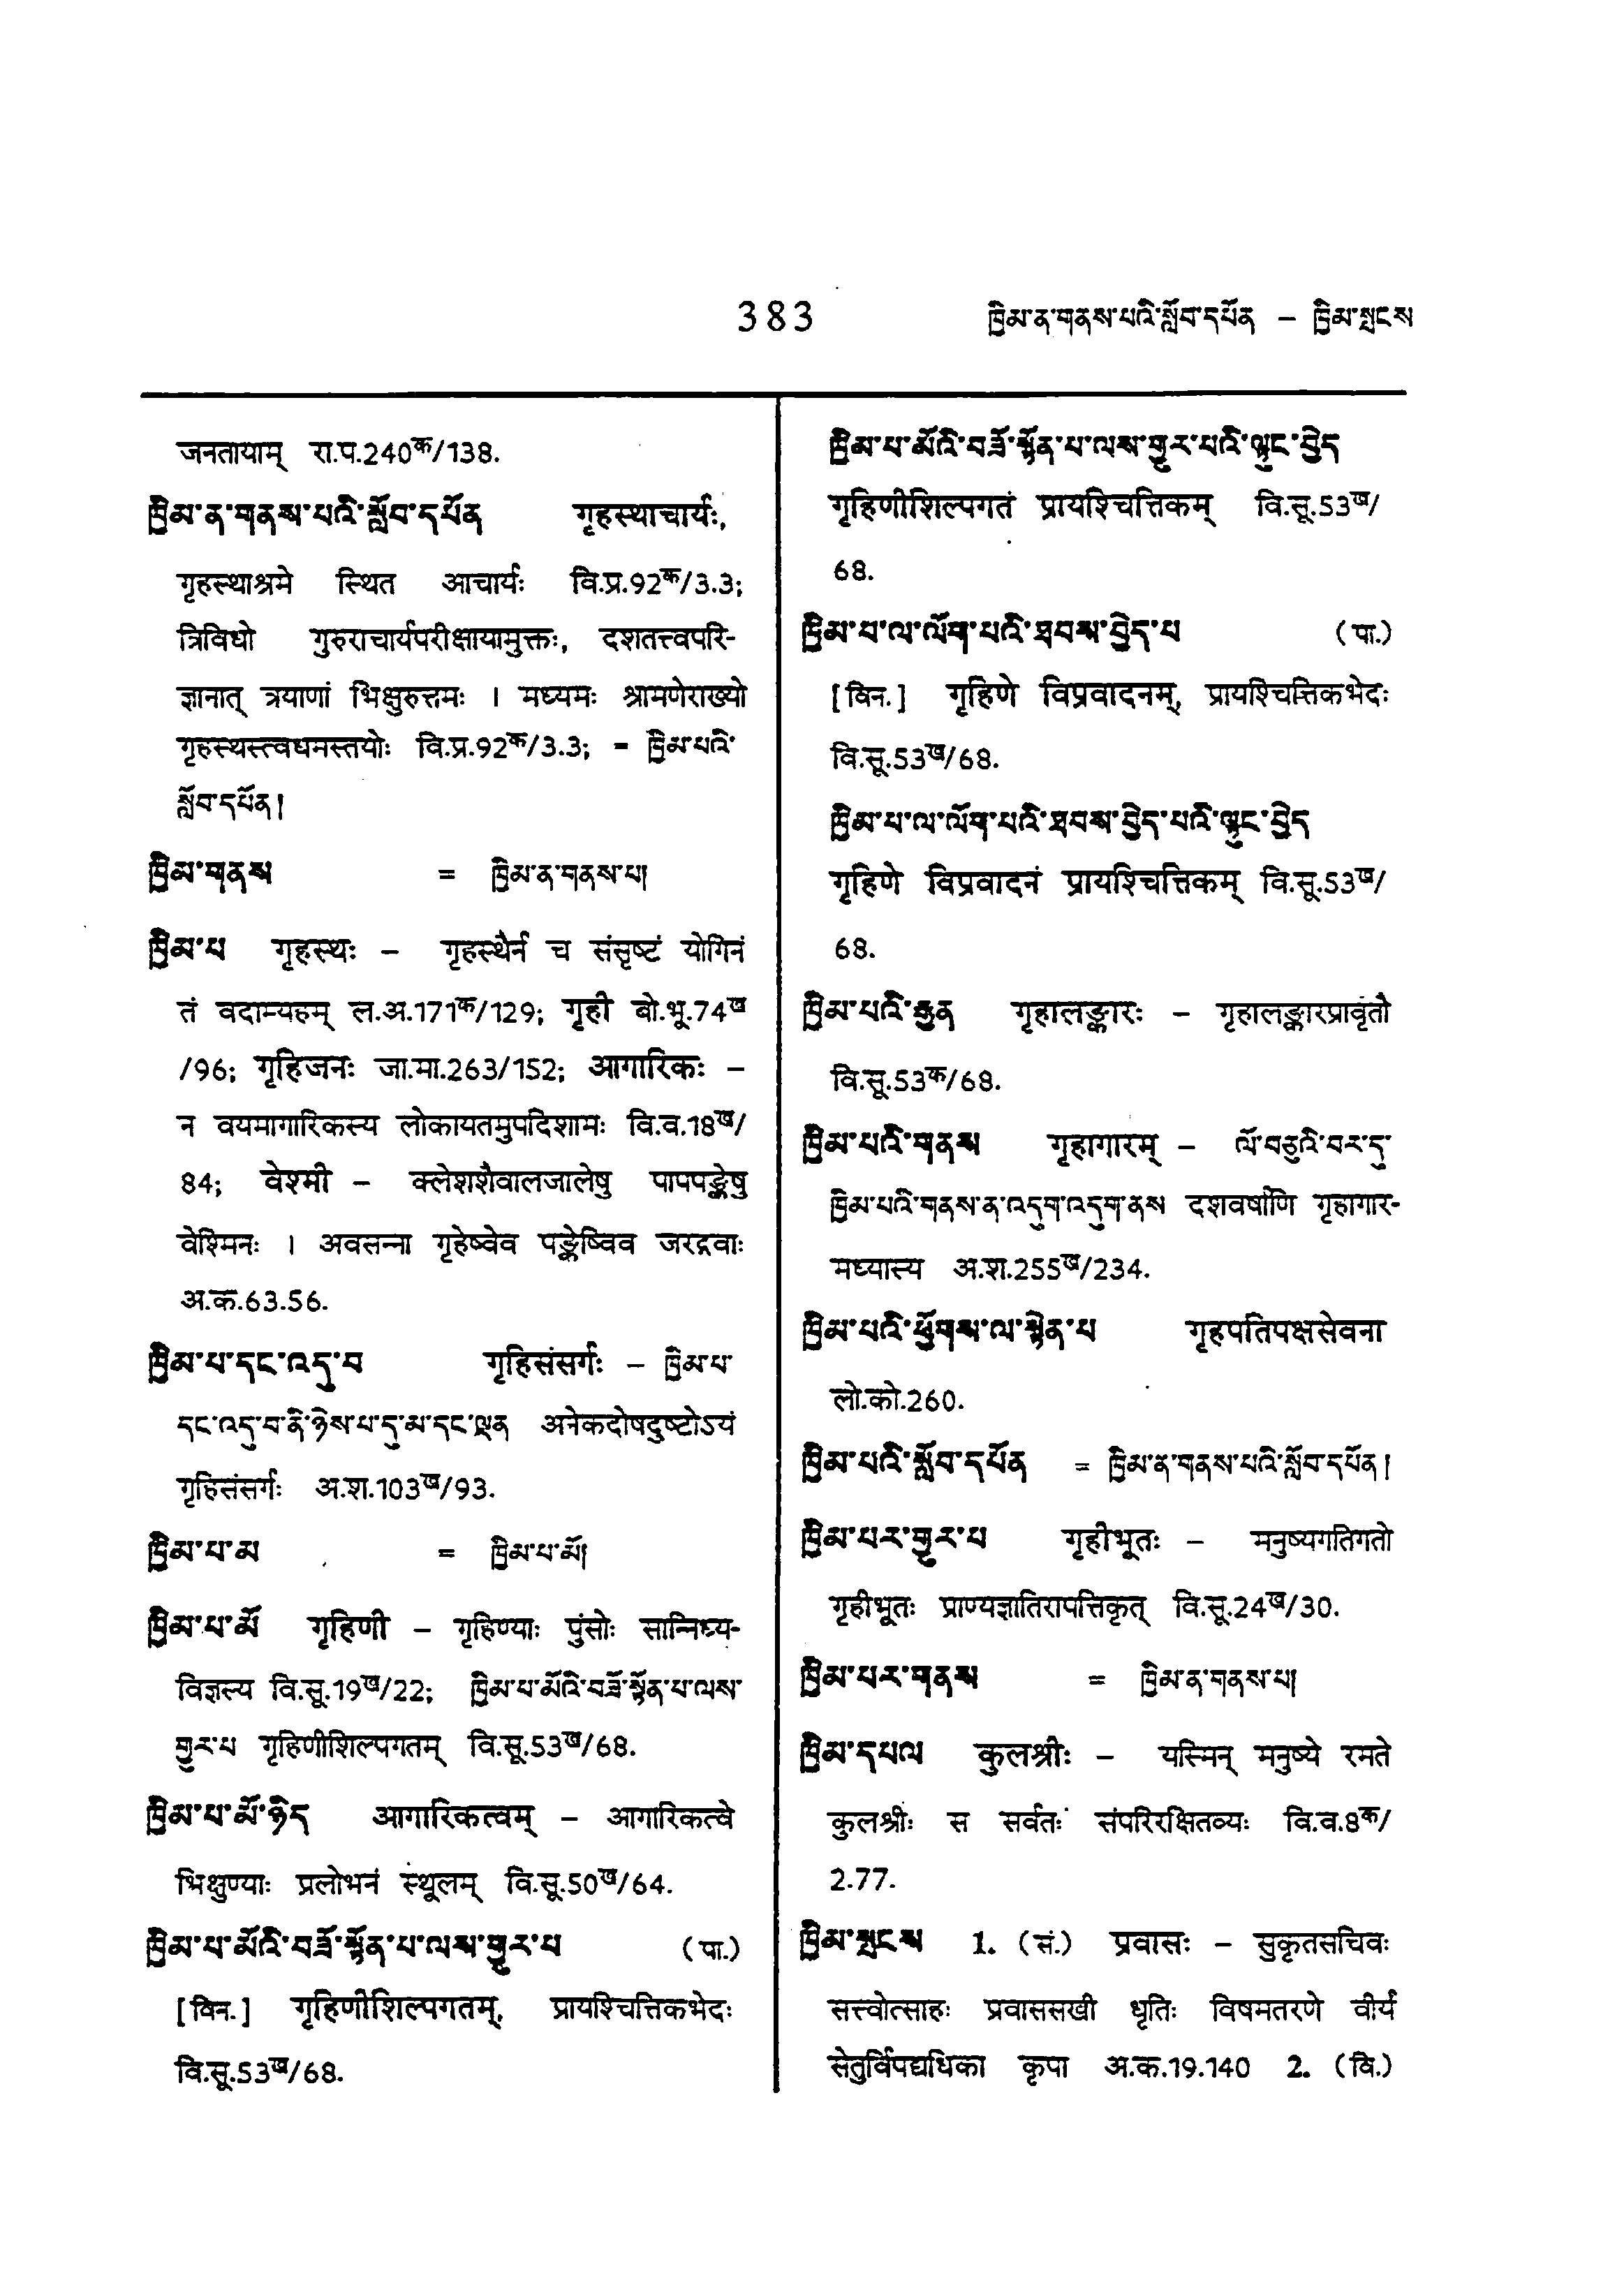 383 ཁྱིམ་ན་གནས་པའི་སློབ་དཔོན – ཁྱིམ་སྤངས
जनतायाम् रा.प.240क/138.
ཁྱིམ་ན་གནས་པའི་སློབ་དཔོན गृहस्थाचार्यः,
गृहस्थाश्रमे स्थित आचार्यः वि.प्र.92क/3.3;
त्रिविधो गुरुराचार्यपरीक्षायामुक्तः, दशतत्त्वपरि-
ज्ञानात् त्रयाणां भिक्षुरुत्तमः । मध्यमः श्रामणेराख्यो
गृहस्थस्त्वधमस्तयोः वि.प्र.92क/3.3; = ཁྱིམ་པའི་
སློབ་དཔོན།
ཁྱིམ་གནས = ཁྱིམ་ན་གནས་པ།
ཁྱིམ་པ गृहस्थः – गृहस्थैर्न च संसृष्टं योगिनं
तं वदाम्यहम् ल.अ.171क/129; गृही बो.भू.74ख
/96; गृहिजनः जा.मा.263/152; आगारिकः –
न वयमागारिकस्य लोकायतमुपदिशामः वि.व.18ख/
84; वेश्मी – क्लेशशैवालजालेषु पापपङ्केषु
वेश्मिनः । अवसन्ना गृहेष्वेव पङ्केष्विव जरद्गवाः
अ.क.63.56.
ཁྱིམ་པ་དང་འདུ་བ गृहिसंसर्गः – ཁྱིམ་པ་
དང་འདུ་བ་ནི་ཉེས་པ་དུ་མ་དང་ལྡན अनेकदोषदुष्टोऽयं
गृहिसंसर्गः अ.श.103ख/93.
ཁྱིམ་པ་མ = ཁྱིམ་པ་མོ།
ཁྱིམ་པ་མོ गृहिणी – गृहिण्याः पुंसोः सान्निध्य-
विज्ञस्य वि.सू.19ख/22; ཁྱིམ་པ་མོའི་བཟོ་སྟོན་པ་ལས་
གྱུར་པ गृहिणीशिल्पगतम् वि.सू.53ख/68.
ཁྱིམ་པ་མོ་ཉིད आगारिकत्वम् – आगारिकत्वे
भिक्षुण्याः प्रलोभनं स्थूलम् वि.सू.50ख/64.
ཁྱིམ་པ་མོའི་བཟོ་སྟོན་པ་ལས་གྱུར་པ (पा.)
[विन.] गृहिणीशिल्पगतम्, प्रायश्चित्तिकभेदः
वि.सू.53ख/68.
ཁྱིམ་པ་མོའི་བཟོ་སྟོན་པ་ལས་གྱུར་པའི་ལྟུང་བྱེད
गृहिणीशिल्पगतं प्रायश्चित्तिकम् वि.सू.53ख/
68.
ཁྱིམ་པ་ལ་ལོག་པའི་ཐབས་བྱེད་པ (पा.)
[विन.] गृहिणे विप्रवादनम्, प्रायश्चित्तिकभेदः
वि.सू.53ख/68.
ཁྱིམ་པ་ལ་ལོག་པའི་ཐབས་བྱེད་པའི་ལྟུང་བྱེད
गृहिणे विप्रवादनं प्रायश्चित्तिकम् वि.सू.53ख/
68.
ཁྱིམ་པའི་རྒྱན गृहालङ्कारः – गृहालङ्कारप्रावृतौ
वि.सू.53क/68.
ཁྱིམ་པའི་གནས गृहागारम् – ལོ་བཅུའི་བར་དུ་
ཁྱིམ་པའི་གནས་ན་འདུག་འདུག་ནས दशवर्षाणि गृहागार-
मध्यास्य अ.श.255ख/234.
ཁྱིམ་པའི་ཕྱོགས་ལ་སྟེན་པ गृहपतिपक्षसेवना
लो.को.260.
ཁྱིམ་པའི་སློབ་དཔོན = ཁྱིམ་ན་གནས་པའི་སློབ་དཔོན།
ཁྱིམ་པར་གྱུར་པ गृहीभूतः – मनुष्यगतिगतो
गृहीभूतः प्राण्यज्ञातिरापत्तिकृत् वि.सू.24ख/30.
ཁྱིམ་པར་གནས = ཁྱིམ་ན་གནས་པ།
ཁྱིམ་དཔལ कुलश्रीः – यस्मिन् मनुष्ये रमते
कुलश्रीः स सर्वतः संपरिरक्षितव्यः वि.व.8क/
2.77.
ཁྱིམ་སྤངས 1. (सं.) प्रवासः – सुकृतसचिवः
सत्त्वोत्साहः प्रवाससखी धृतिः विषमतरणे वीर्यं
सेतुर्विपद्यधिका कृपा अ.क.19.140 2. (वि.)